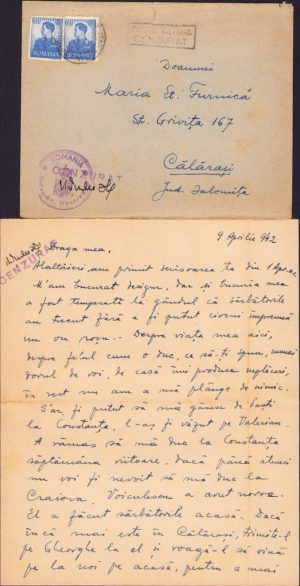 ROMANIA
ROMANIA
CENZURAT
Doamnei
Maria Et. Furnică
St. Grivița 167
Călărași
Jud. Ialomița
ROMANIA
CENZURAT
9 Aprilie 942
CENZURAT
Draga mea,
Alaltăieri am primit scrisoarea ta din 1 Aprilie
M'am bucurat desigur, dar și bucuria mea
a fost temperată la gândul că sărbătorile
au trecut fără a fi putut ciocni împreună
un ou roșu. Despre viața mea aici,
despre felul cum o duc, ce să-ți spun, numai
dorul de voi, de casă îmi produce neplăceri,
în rest nu am a mă plânge de nimic.
S'ar fi putut să mă găsesc de
la Constanța, l-aș fi văzut pe Valerian.
A rămas să mă duc la Constanța
săptămâna viitoare, dacă până atunci
nu voi fi nevoit să mă duc la
Craiova. Voiculescu a avut noroc.
El a făcut sărbătorile acasă. Dacă
încă mai este în Călărași, trimite-l
pe Gheorghe la el și roagă-l să vină
pe la noi pe acasă, pentru a mai